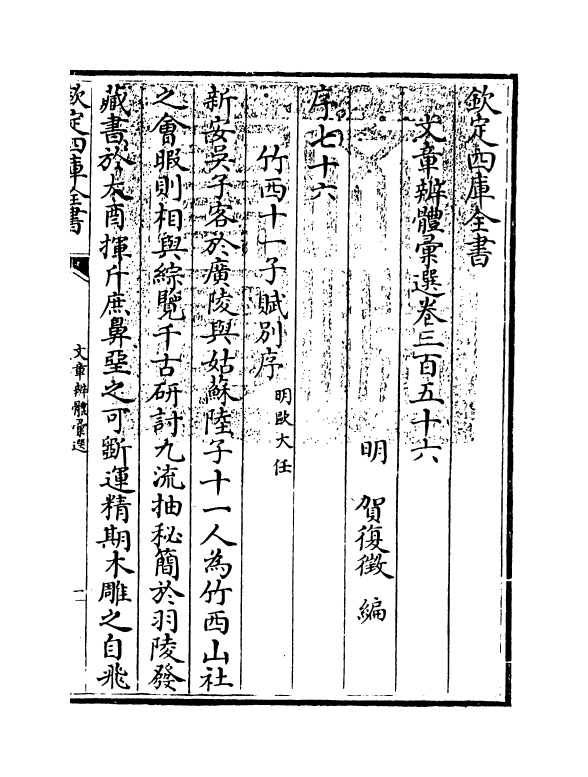 欽定四庫全書
文章辨體彙選卷三百五十六
明 賀復徵 編
序七十六
竹西十一子賦別序 明歐大任
新安吳子客於廣陵與姑蘇陸子十一人為竹西山社
之會暇則相與綜覽千古研討九流抽秘簡於羽陵發
藏書於大酉揮斤庶鼻堊之可斵運精期木雕之自飛
欽定四庫全書
文章辨體彙選
一